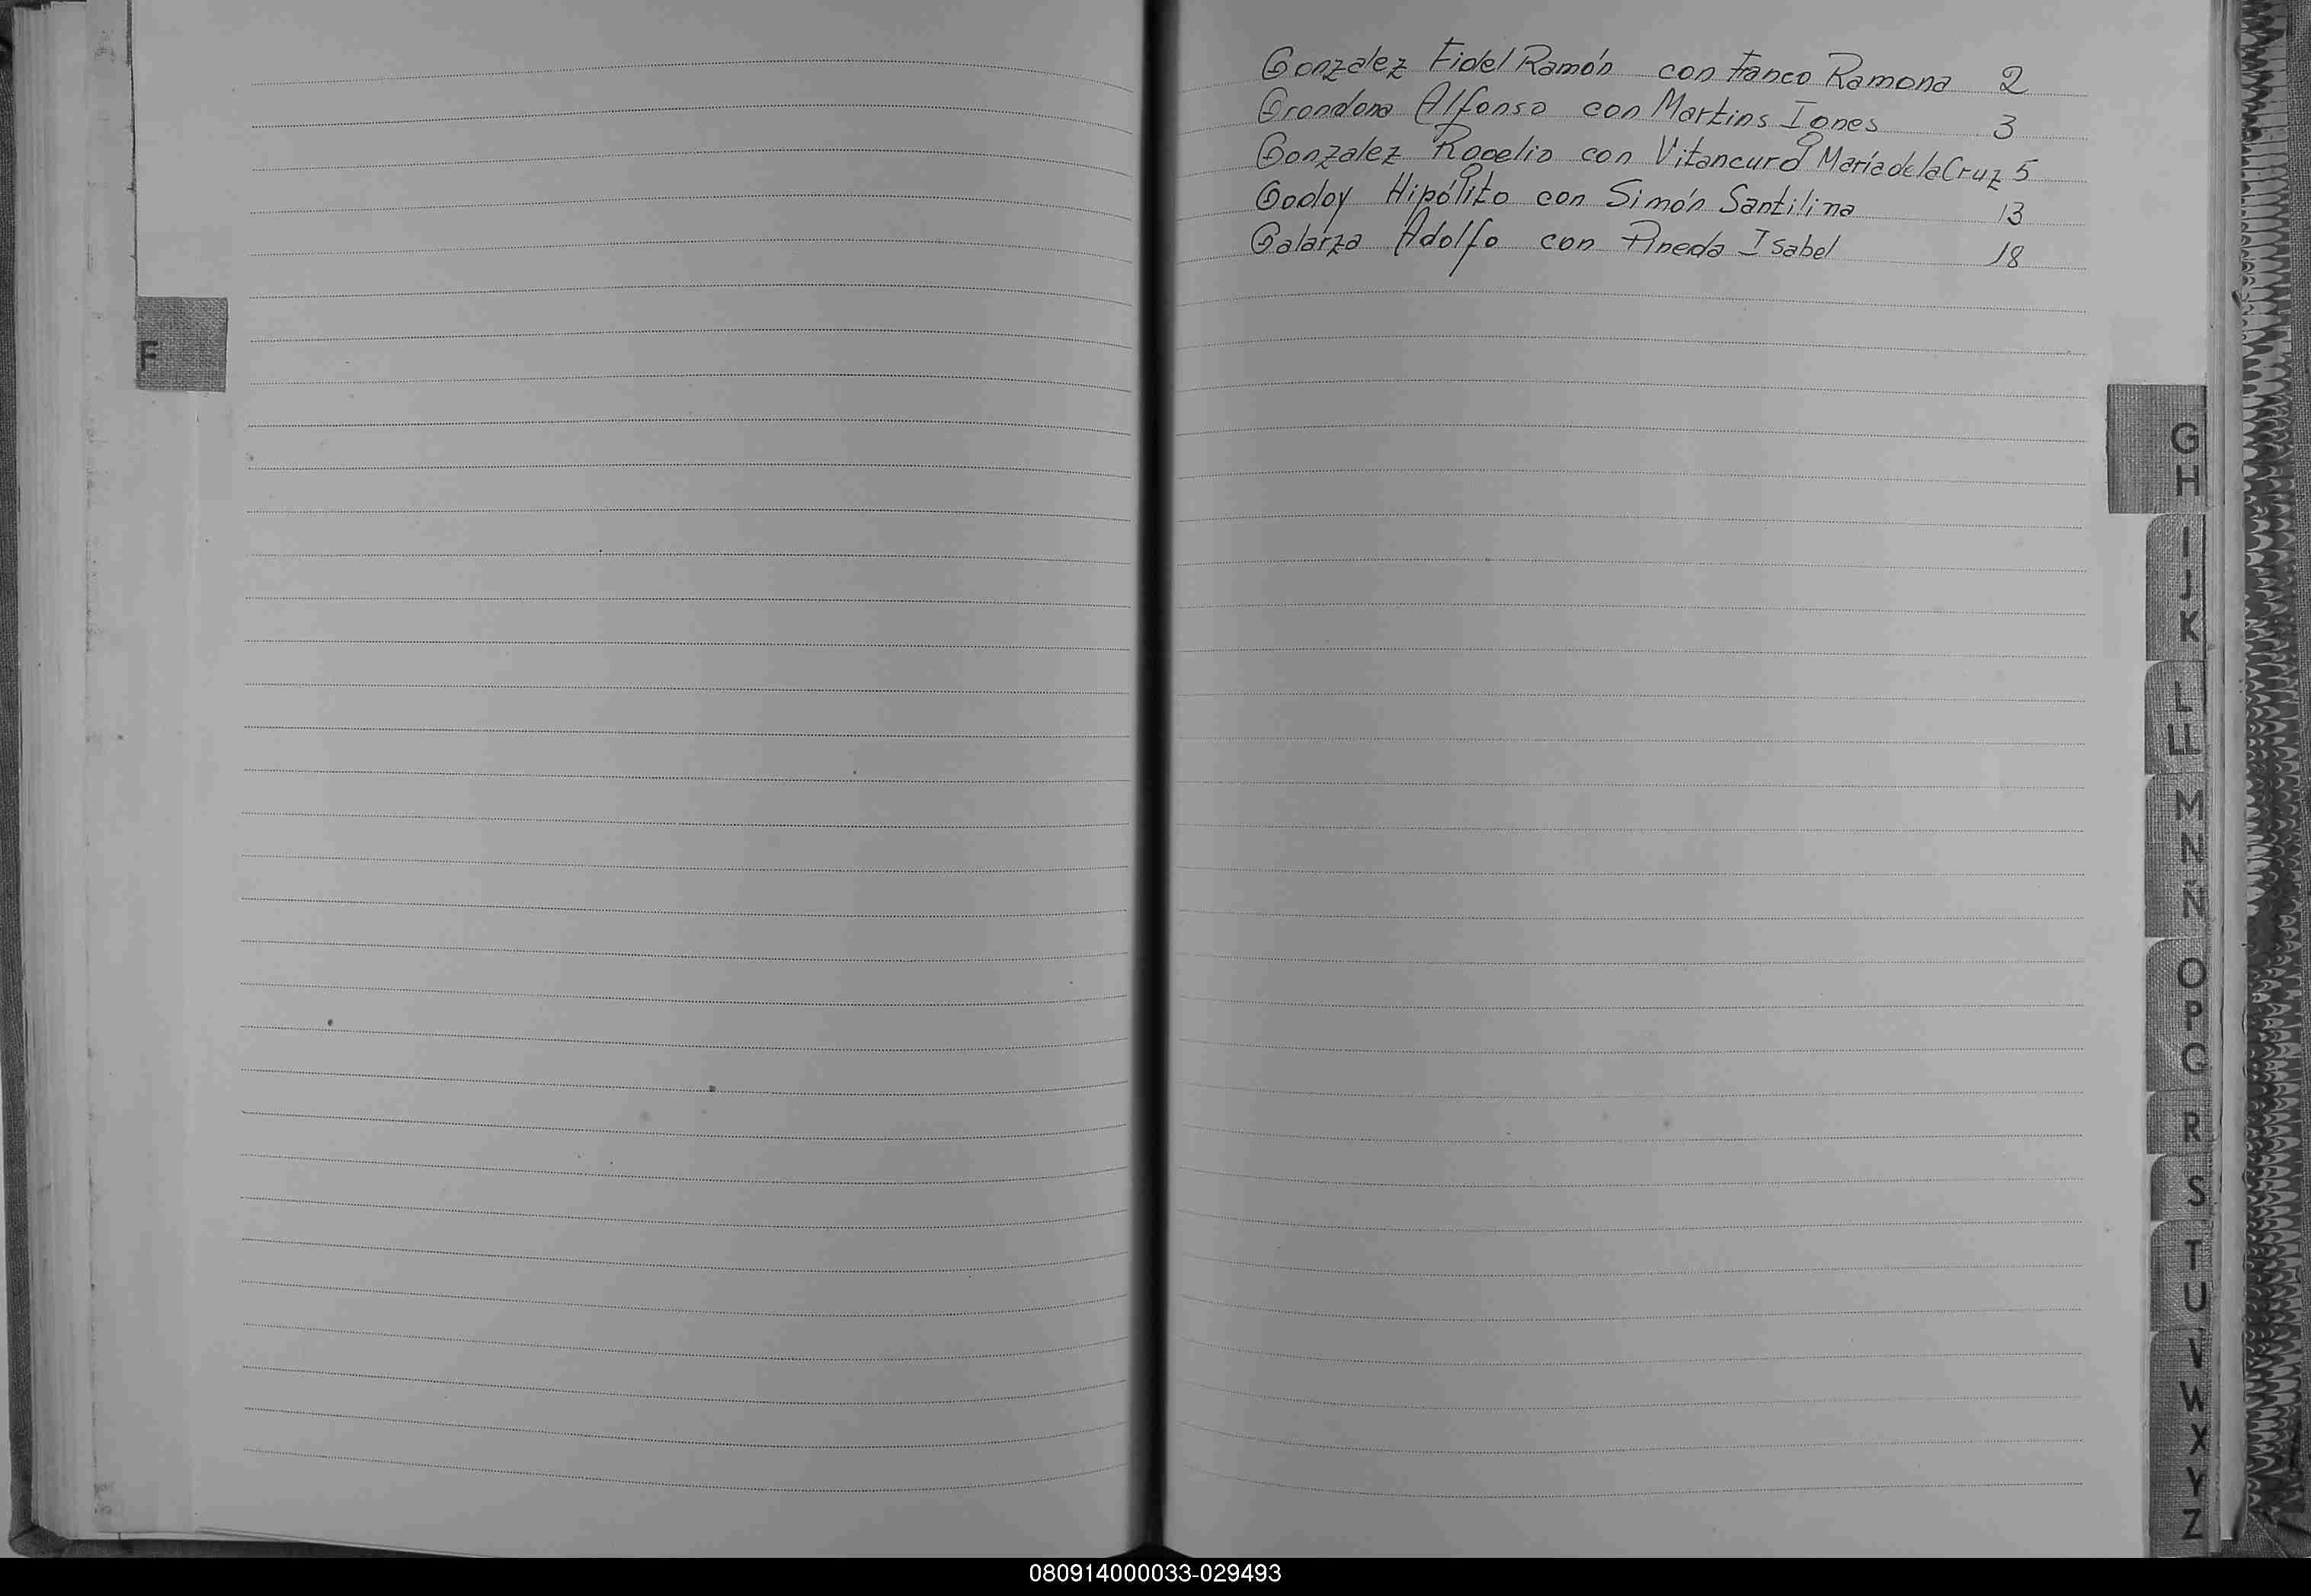 Gonzalez Fidel Ramón con Franco Ramona 2
Grondona Alfonso con Martins Ignes 3
Gonzalez Rogelio con Vitancurd María de la Cruz 5
Godoy Hipólito con Simón Santilina 13
Galarza Adolfo con Pineda Isabel 18
F
G
H
I
J
K
L
LL
M
N
Ñ
O
P
Q
R
S
T
U
V
W
X
Y
Z
080914000033-029493